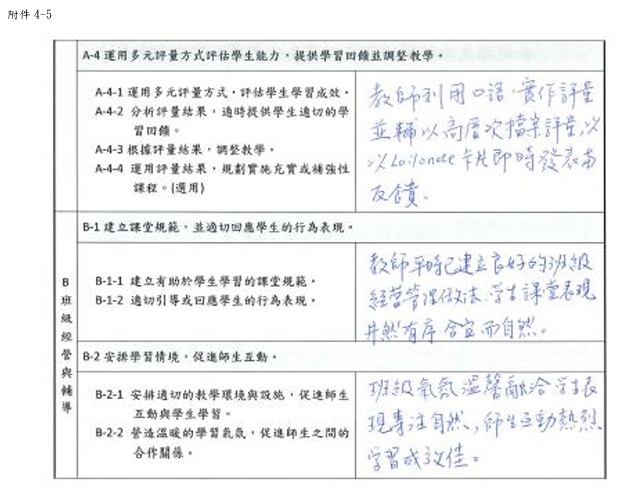 附件 4-5
A-4 運用多元評量方式評估學生能力，提供學習回饋並調整教學。
A-4-1 運用多元評量方式，評估學生學習成效。
A-4-2 分析評量結果，適時提供學生適切的學
習回饋。
A-4-3 根據評量結果，調整教學。
A-4-4 運用評量結果，規劃實施充實或補強性
課程。(選用)
教師利用口語、實作評量
並輔以高層次檔案評量,以
以Loilonote卡片即時發表與
反饋.
B
班
級
經
營
與
輔
導
B-1 建立課堂規範，並適切回應學生的行為表現。
B-1-1 建立有助於學生學習的課堂規範。
B-1-2 適切引導或回應學生的行為表現。
教師平時已建立良好的班級
經營管理做法.學生課堂表現
井然有序 合宜而自然。
B-2 安排學習情境，促進師生互動。
B-2-1 安排適切的教學環境與設施，促進師生
互動與學生學習。
B-2-2 營造溫暖的學習氣氛，促進師生之間的
合作關係。
班級氣氛溫馨融洽 學生表
現專注自然, 師生互動熱烈
學習成效佳。